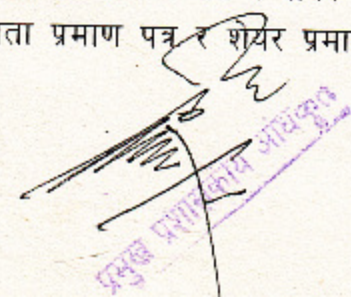 ता प्रमाण पत्र र शेयर प्रमा
प्रमुख प्रशासकीय अधिकृत